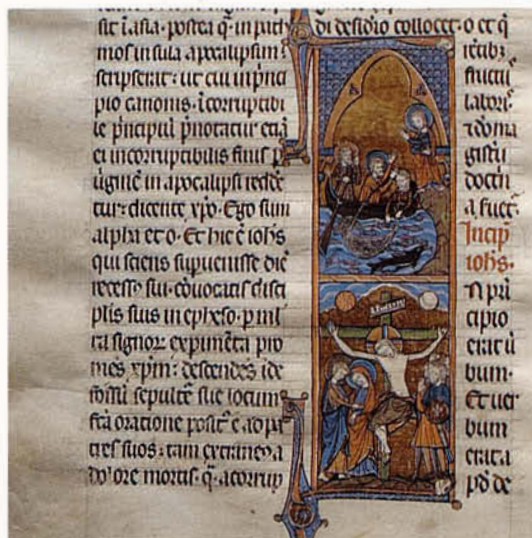 sit i asia. postea q̄ in path
mos insula apocalipsim
scripserit: ut cui in p̄nci
pio canonis. icorruptibi
le p̄ncipiū p̄notatur etiā
ei incorruptibilis finis p̄
ūginē in apocalipsi redde
tur: dicente xp̄o. Ego sum
alpha et o. Et hic ē ioh̄s
qui sciens supuenisse diē
recess⁹ sui. cōuocatis disci
plis suis in epheso. p̄ ml̄
ta signor⁊ expimēta pro
mēs xp̄m: descēdēs i de
fossū sepulte sue locum
fc̄a oratione posit⁹ ē ad pa
tres suos: tam extraneꝰ a
dolore mortis. q̄. a corrup
di desidio collocet. o et q̄
fructū
labori.
⁊ doma
gist̄ii
docīn
a fuet.
Incip
ioh̄s.
N pri
cipio
erat ū
bum.
Et uer
bum
erat a
pd de